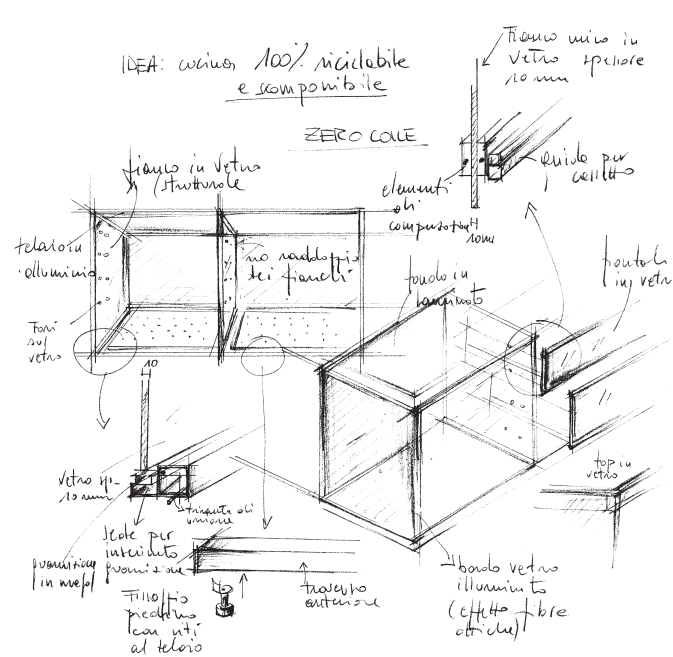 IDEA: cucina 100% riciclabile
e scomponibile
ZERO COLLE
Fianco unico in
vetro spessore
10 mm
guida per
cassetto
elementi
di
compensazione
10mm
fianco in vetro
strutturale
telaio in
alluminio
no raddoppio
dei fianchi
Fori
sul
vetro
fondo in
laminato
frontali
in vetro
10
vetro sp.
10 mm
tirante di
unione
Sede per
inserimento
guarnizione
guarnizione
in
top in
vetro
Fissaggio
piedino
con viti
al telaio
traverso
anteriore
bordo vetro
illuminato
(effetto fibre
ottiche)